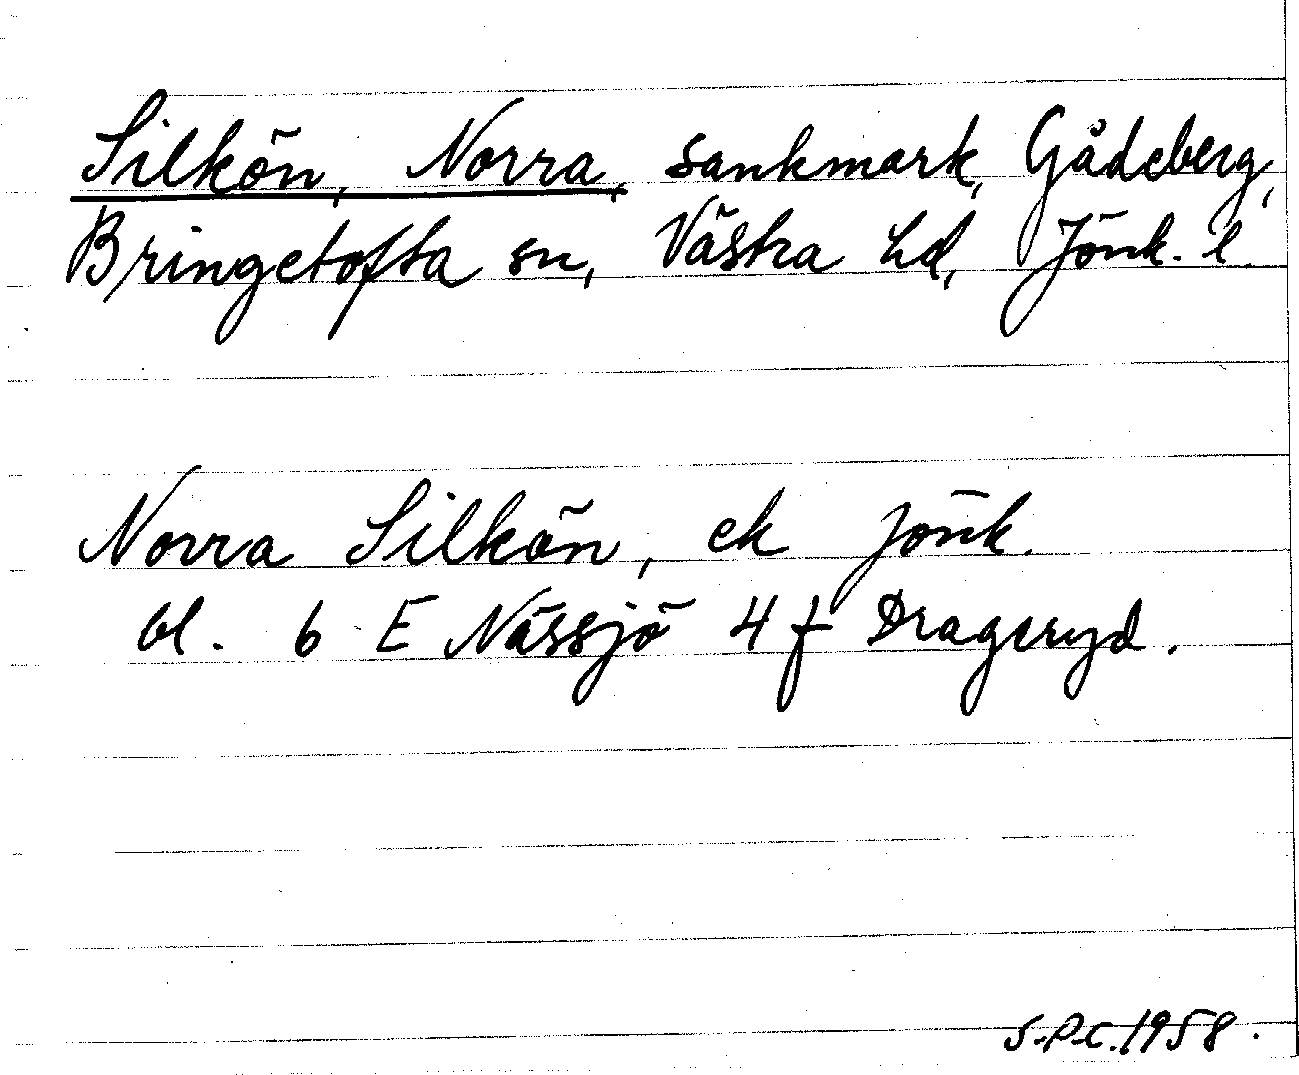 Silkön, Norra, sankmark, Gådeberg,
Bringetofta sn, Västra hd, Jönk. l.
Norra Silkön, ek Jönk.
bl. 6 E Nässjö 4 f Drageryd.
S.P.C. 1958.